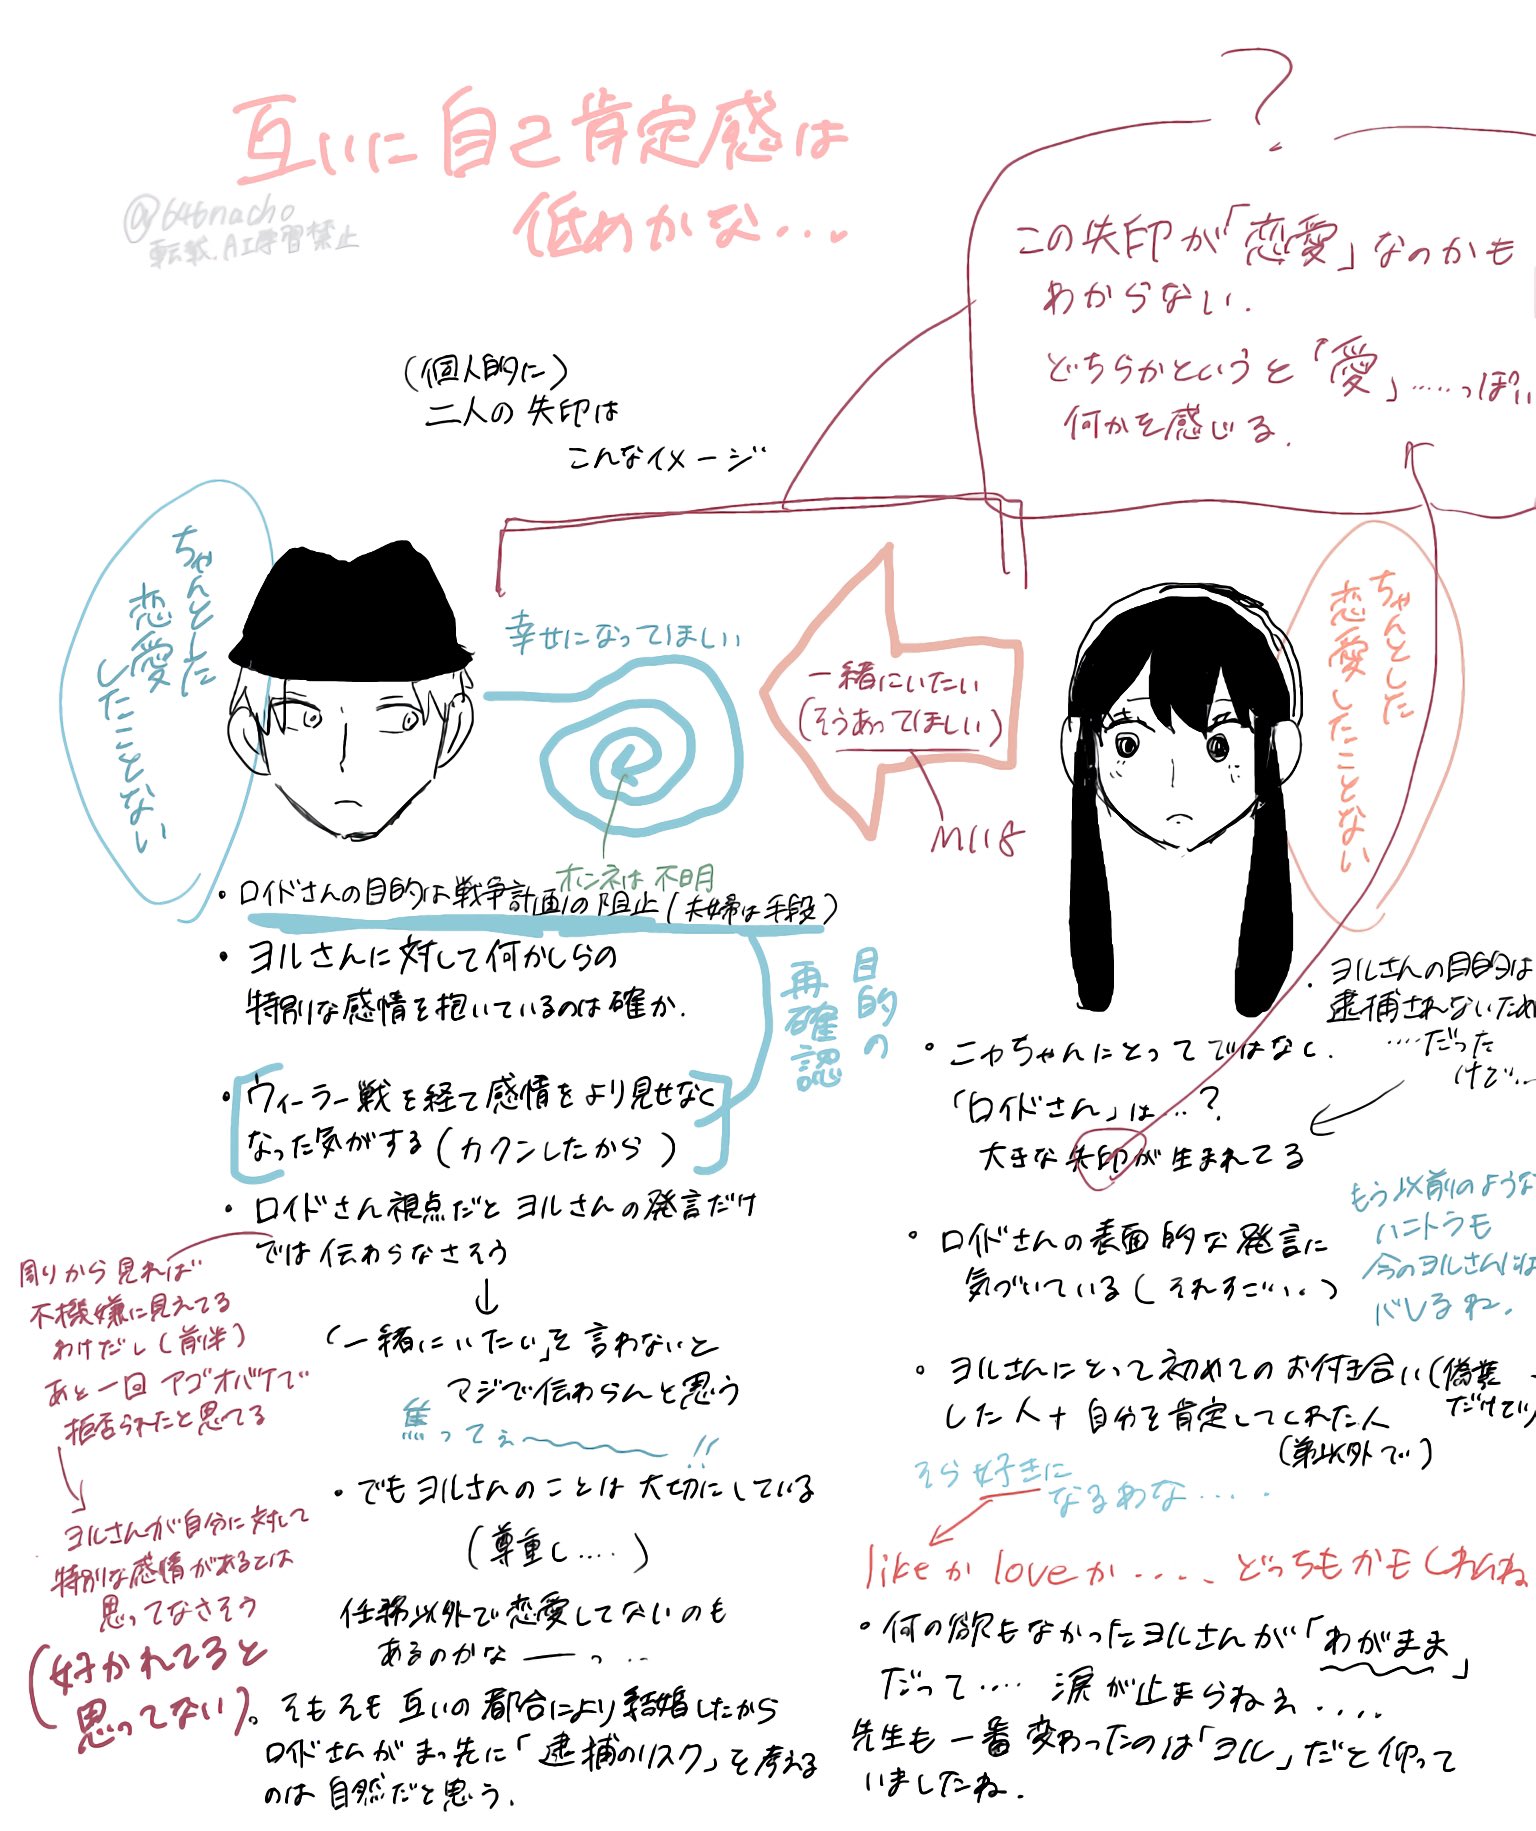 互いに自己肯定感は
低めかな...
@646nacho
転載、AI学習禁止
?
この矢印が「恋愛」なのかも
わからない.
どちらかというと「愛」……っぽい
何かを感じる.
(個人的に)
二人の矢印は
こんなイメージ
ちゃんとした
恋愛
したことない
幸せになってほしい
一緒にいたい
(そうあってほしい)
M118
ちゃんとした
恋愛したことない
ホンネは不明
・ロイドさんの目的は戦争計画の阻止(夫婦は手段)
・ヨルさんに対して何かしらの
特別な感情を抱いているのは確か.
目的の
再確認
・ウィーラー戦を経て感情をより見せなく
なった気がする(カクンしたから)
・ロイドさん視点だとヨルさんの発言だけ
では伝わらなさそう
↓
「一緒にいたい」を言わないと
マジで伝わらんと思う
焦ってぇ〜!!
周りから見れば
不機嫌に見えてる
わけだし(前半)
あと一回アゴオバケで
拒否られたと思ってる
ヨルさんが自分に対して
特別な感情があるとは
思ってなさそう
(好かれてると
思ってない)
・でもヨルさんのことは大切にしている
(尊重し....)
任務以外で恋愛してないのも
あるのかなーっ..
。そもそも互いの都合により結婚したから
ロイドさんがまっ先に「逮捕のリスク」を考える
のは自然だと思う.
・ヨルさんの目的は
逮捕されないため
....だった
けど...
・ニャちゃんにとってではなく.
「ロイドさん」は...?
大きな矢印が生まれてる
もう以前のような
ハニトラも
今のヨルさんには
バレるね.
・ロイドさんの表面的な発言に
気づいている(それすごい..)
・ヨルさんにとって初めてのお付き合い(偽装
だけど)
した人+自分を肯定してくれた人
(弟以外で)
そら好きに
なるわな....
likeかloveか....どっちもかもしれんね
・何の欲もなかったヨルさんが「わがまま」
だって.... 涙が止まらねえ....
先生も一番変わったのは「ヨル」だと仰って
いましたね.